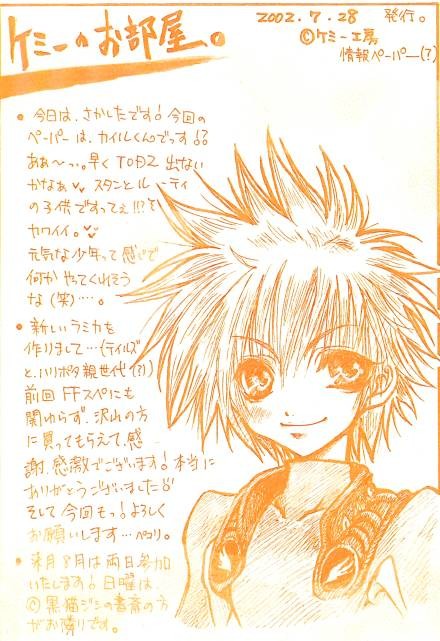 ケミーのお部屋。
2002.7.28 発行。
©ケミー工房
情報ペーパー(?)
• 今日は、さかしたです! 今回の
ペーパーは、カイルくんでっす!?
ああ〜っ。早く TOD2 出ない
かなぁ♥♥ スタンとルーティ
の子供ですってぇ!!?
カワイイ。♥♥
元気な少年って感じで
何かやってくれそう
な(笑)…。
• 新しいラミカを
作りまして…(テイルズ
と、ハリポタ親世代(?))
前回FFスペにも
関わらず、沢山の方
に買ってもらえて、感
謝、感激でございます! 本当に
ありがとうございました!!
そして今回も! よろしく
お願いします…ペコリ。
• 来月8月は両日参加
いたします! 日曜は、
黒猫ジジの書斎の方
がお隣りです。